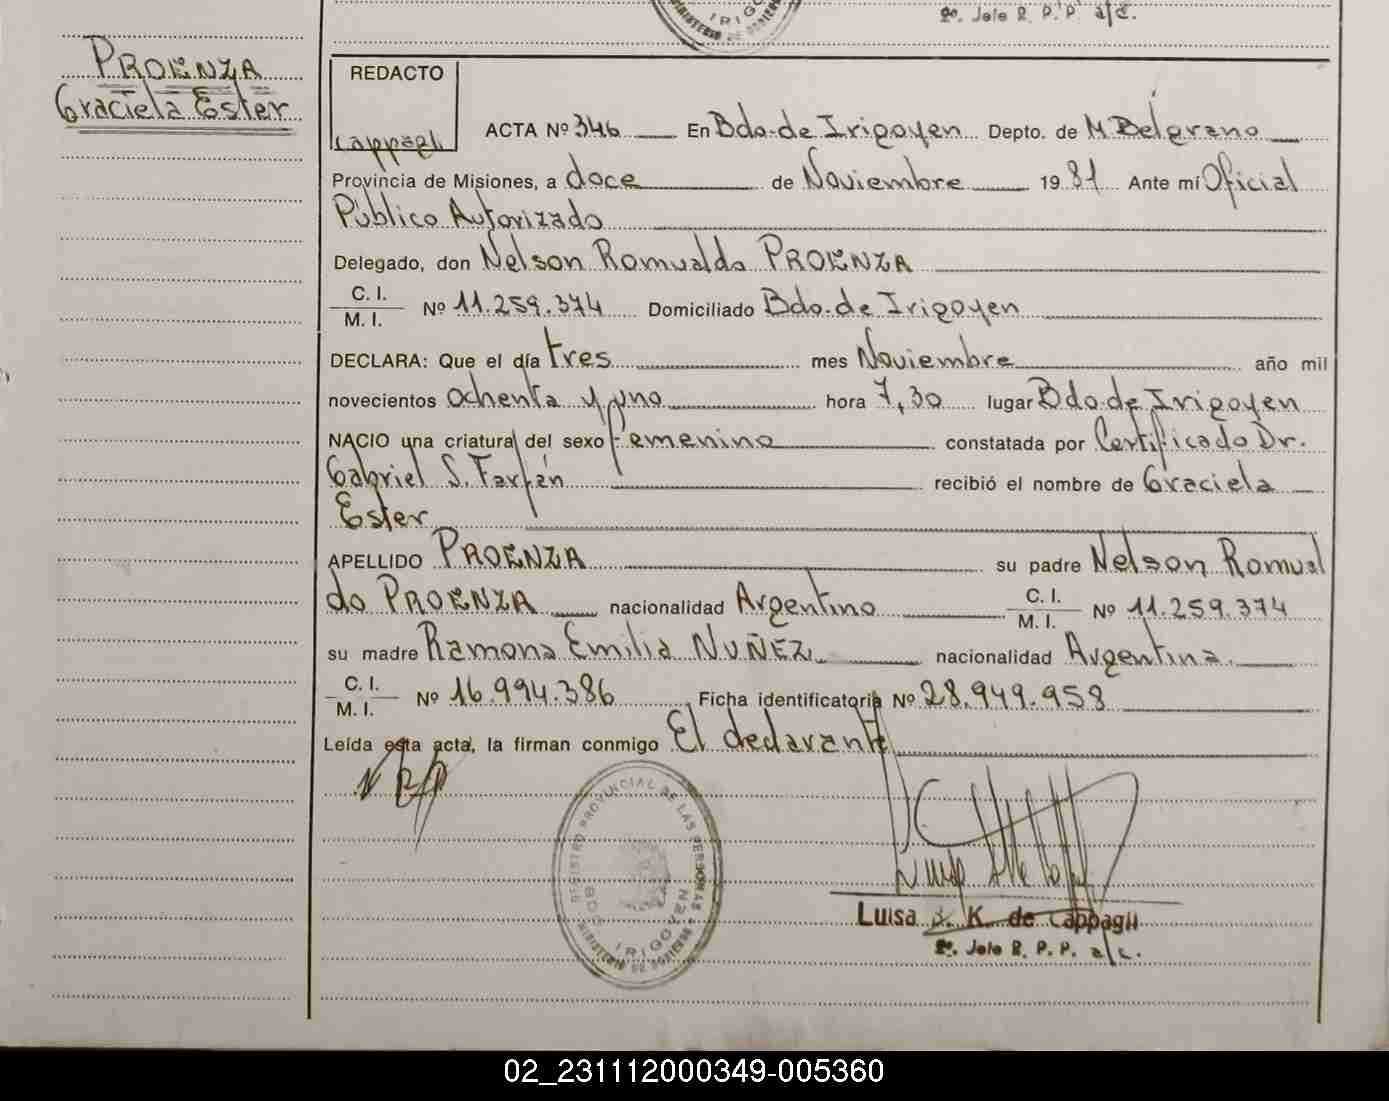 IRIGO
MINISTERIO DE GOBIERNO
2º. Jefe R. P. P. a/c.
PROENZA
Graciela Ester
REDACTO
Cappagli
ACTA Nº 346 En Bdo. de Irigoyen Depto. de M. Belgrano
Provincia de Misiones, a doce de Noviembre 1981 Ante mí Oficial
Público Autorizado
Delegado, don Nelson Romualdo PROENZA
C. I.
M. I. Nº 11.259.374 Domiciliado Bdo. de Irigoyen
DECLARA: Que el día tres mes Noviembre año mil
novecientos ochenta y uno hora 7,30 lugar Bdo de Irigoyen
NACIO una criatura del sexo femenino constatada por Certificado Dr.
Gabriel S. Farfán recibió el nombre de Graciela
Ester
APELLIDO PROENZA su padre Nelson Romual
do PROENZA nacionalidad Argentino C. I. M. I. Nº 11.259.374
su madre Ramona Emilia NUÑEZ nacionalidad Argentina.
C. I.
M. I. Nº 16.994.386 Ficha identificatoria Nº 28.949.958
Leída esta acta, la firman conmigo El declarante
REGISTRO PROVINCIAL DE LAS PERSONAS
BDO DE IRIGOYEN
MINISTERIO DE GOBIERNO
Luisa K. de Cappagli
2º. Jefe R. P. P. a/c.
02_231112000349-005360